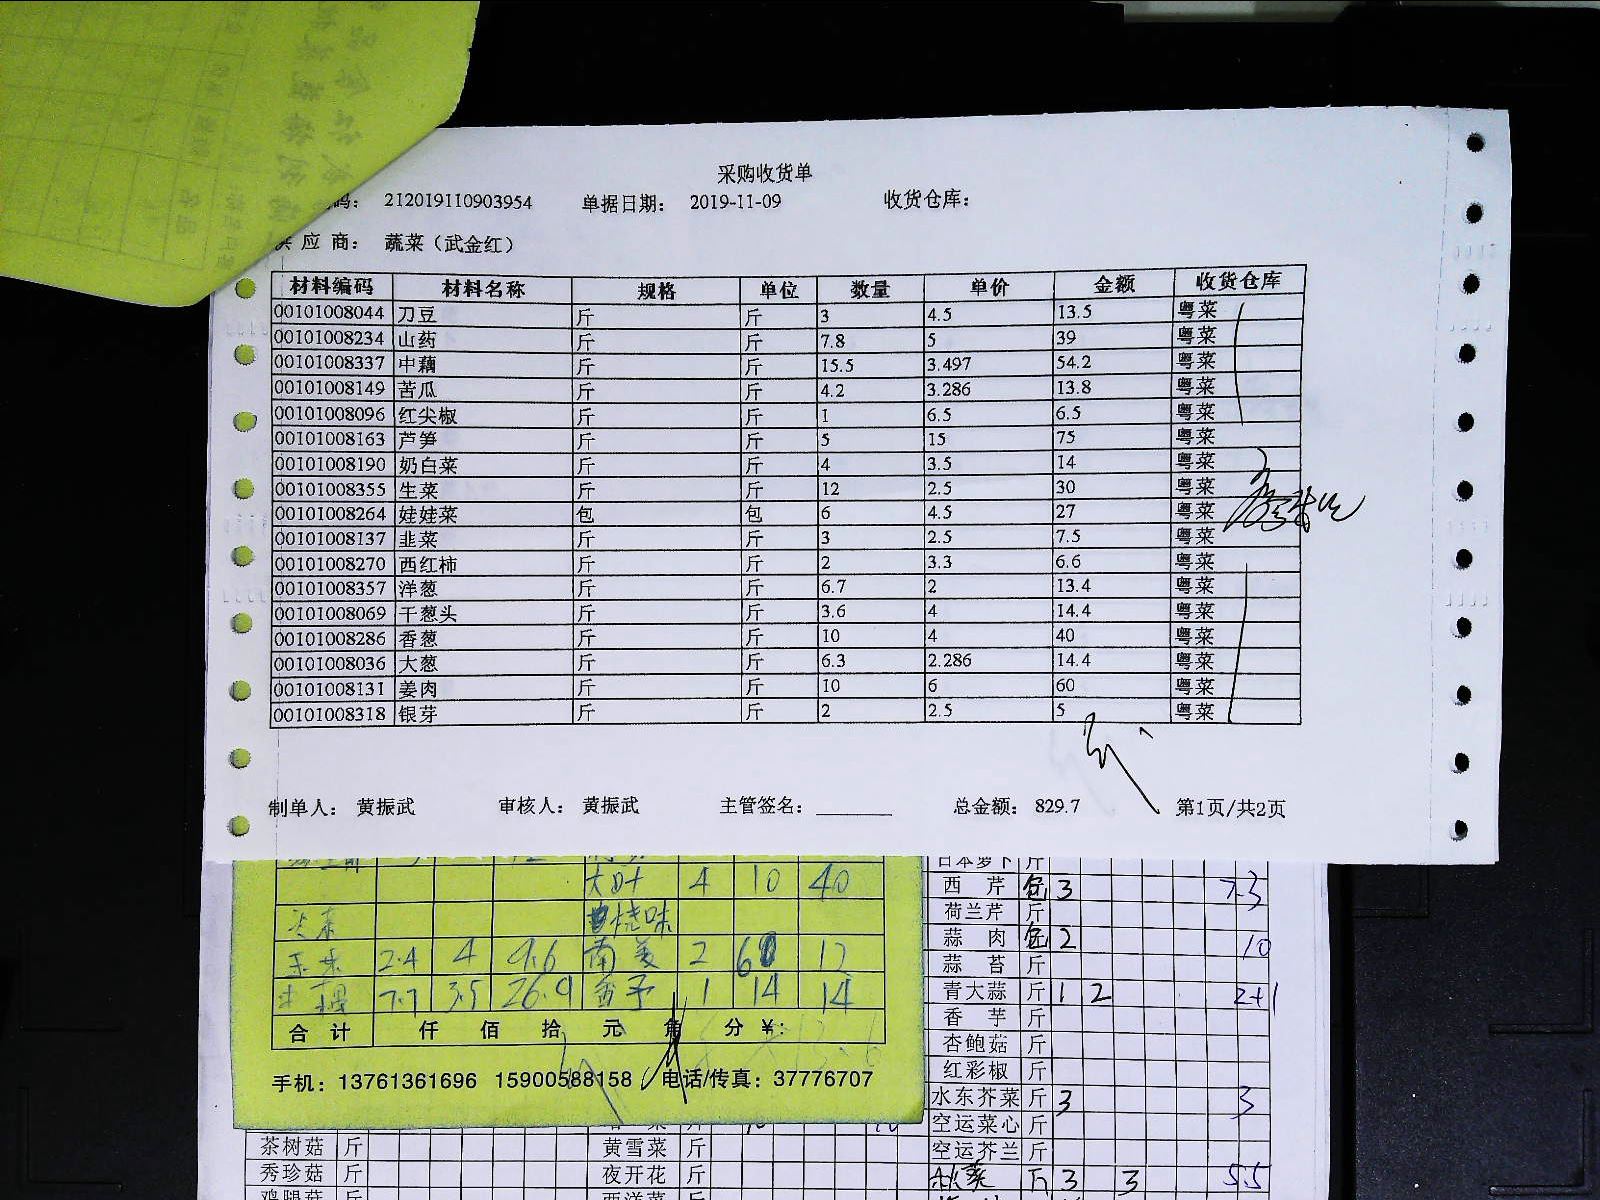 采购收货单
码: 212019110903954 单据日期: 2019-11-09 收货仓库:
供 应 商: 蔬菜（武金红）
材料编码 材料名称 规格 单位 数量 单价 金额 收货仓库
00101008044 刀豆 斤 斤 3 4.5 13.5 粤菜
00101008234 山药 斤 斤 7.8 5 39 粤菜
00101008337 中藕 斤 斤 15.5 3.497 54.2 粤菜
00101008149 苦瓜 斤 斤 4.2 3.286 13.8 粤菜
00101008096 红尖椒 斤 斤 1 6.5 6.5 粤菜
00101008163 芦笋 斤 斤 5 15 75 粤菜
00101008190 奶白菜 斤 斤 4 3.5 14 粤菜
00101008355 生菜 斤 斤 12 2.5 30 粤菜
00101008264 娃娃菜 包 包 6 4.5 27 粤菜
00101008137 韭菜 斤 斤 3 2.5 7.5 粤菜
00101008270 西红柿 斤 斤 2 3.3 6.6 粤菜
00101008357 洋葱 斤 斤 6.7 2 13.4 粤菜
00101008069 干葱头 斤 斤 3.6 4 14.4 粤菜
00101008286 香葱 斤 斤 10 4 40 粤菜
00101008036 大葱 斤 斤 6.3 2.286 14.4 粤菜
00101008131 姜肉 斤 斤 10 6 60 粤菜
00101008318 银芽 斤 斤 2 2.5 5 粤菜
制单人: 黄振武 审核人: 黄振武 主管签名: 总金额: 829.7 第1页/共2页
大叶 4 10 40
烧味
2.4 4 9.6 南美 2 6 12
7.7 3.5 26.9 香芋 1 14 14
合 计 仟 佰 拾 元 角 分 ¥:
手机: 13761361696 15900588158 电话/传真: 37776707
日本萝卜 斤
西 芹 包 3 7.3
荷兰芹 斤
蒜 肉 包 2 10
蒜 苔 斤
青大蒜 斤 1 2 2+1
香 芋 斤
杏鲍菇 斤
红彩椒 斤
水东芥菜 斤 3 3
空运菜心 斤
空运芥兰 斤
秋葵 斤 3 3 5.5
茶树菇 斤 黄雪菜 斤
秀珍菇 斤 夜开花 斤
鸡腿菇 斤 西洋菜 斤